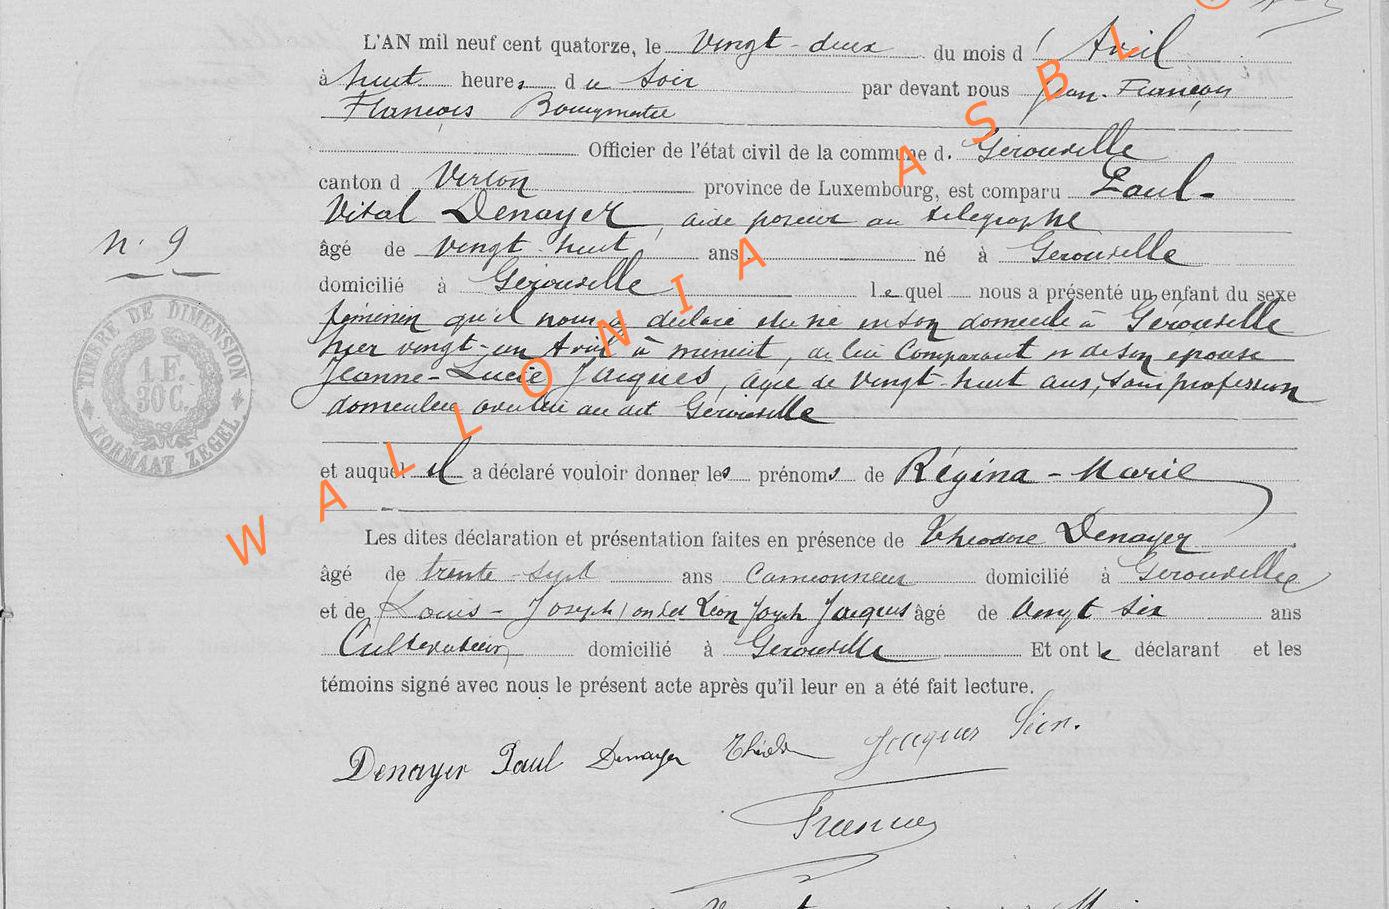 L'AN mil neuf cent quatorze, le vingt-deux du mois d' Avril
à huit heures du soir par devant nous Jean-François
François
Officier de l'état civil de la commune d. Gérouville
canton d Virton province de Luxembourg, est comparu Paul-
Vital Denayer, aide poseur au télégraphe
âgé de vingt-huit ans né à Gérouville
n° 9
domicilié à Gérouville lequel nous a présenté un enfant du sexe
féminin qu'il nous a déclaré être né en son domicile à Gérouville
hier vingt-un Avril à minuit, de lui Comparant et de son épouse
Jeanne-Lucie Jacques, âgée de vingt-huit ans, sans profession
domiciliée avec lui au dit Gérouville
et auquel il a déclaré vouloir donner les prénoms de Régina-Marie
Les dites déclaration et présentation faites en présence de Théodore Denayer
âgé de trente-sept ans Camionneur domicilié à Gérouville
et de Louis-Joseph Léon Joseph Jacques âgé de vingt six ans
Cultivateur, domicilié à Gérouville Et ont le déclarant et les
témoins signé avec nous le présent acte après qu'il leur en a été fait lecture.
Denayer Paul Denayer Jacques Léon.
TIMBRE DE DIMENSION
1 F.
30 C.
FORMAAT ZEGEL
WALLONIA ASBL